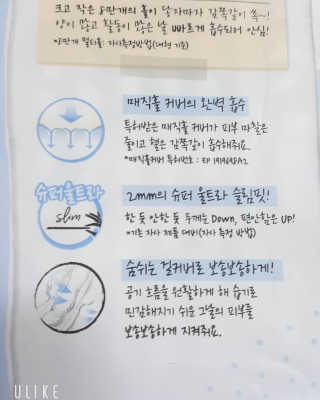 크고 작은 8만개의 홀이 낱자마자 감쪽같이 쏙~!
양이 많고 활동이 많은 날 빠르게 흡수되어 안심!
매직홀 커버의 완벽 흡수
특허받은 매직홀 커버가 피부 마찰은
줄이고 샐은 감쪽같이 흡수해줘요.
*매직홀커버 특허번호 : EP 1919684A2
슈퍼울트라
slim
2mm의 슈퍼 울트라 슬림핏!
한 듯 안한 듯 두께는 Down, 편안함은 UP!
*기존 자사 제품 대비(자사 측정 방법)
숨쉬는 겉커버로 보송보송하게!
공기 흐름을 원활하게 해 습기로
민감해지기 쉬운 그날의 피부를
보송보송하게 지켜줘요.
ULIKE